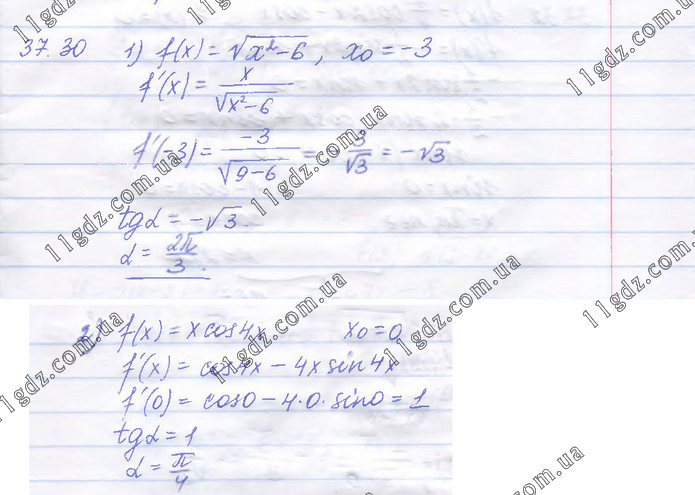 37.30 1) f(x) = √(x²-6), x₀ = -3
f'(x) = x/√(x²-6)
f'(-3) = -3/√(9-6) = - 3/√3 = -√3
tgα = -√3.
α = 2π/3.
2) f(x) = x cos4x x₀ = 0
f'(x) = cos4x - 4x sin4x
f'(0) = cos0 - 4·0·sin0 = 1
tgα = 1
α = π/4
11gdz.com.ua
11gdz.com.ua
11gdz.com.ua
11gdz.com.ua
11gdz.com.ua
11gdz.com.ua
11gdz.com.ua
11gdz.com.ua